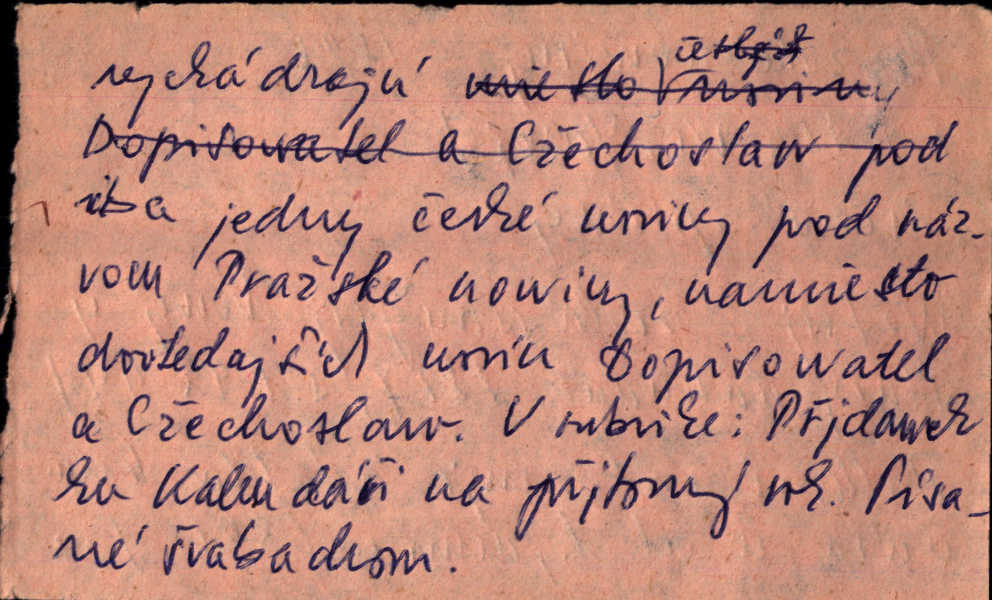 vychádzajú miesto noviny českých
Dopisowatel a Cžechoslaw pod
iba jedny české noviny pod náz-
vom Pražské nowiny, namiesto
dovtedajších novín Dopisowatel
a Cžechoslaw. V rubrike: Přjdawek
ku Kalendáři na přjtomný rok. Písa-
né švabachom.